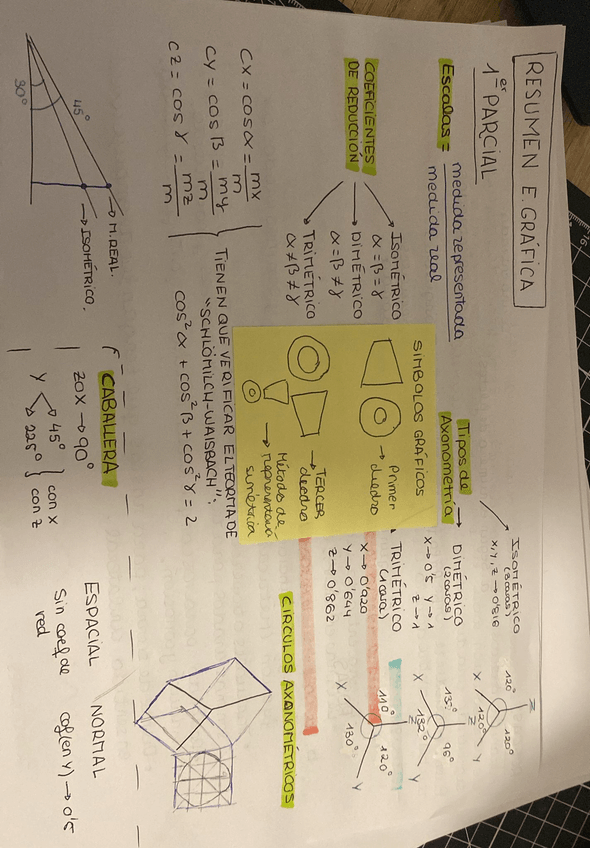 RESUMEN E. GRÁFICA
1er PARCIAL
Escalas = medida representada
medida real
COEFICIENTES
DE REDUCCIÓN
ISOMÉTRICO
α = β = γ
DIMÉTRICO
α = β ≠ γ
TRIMÉTRICO
α ≠ β ≠ γ
CX = cos α = mx
m
CY = cos β = my
m
CZ = cos γ = mz
m
TIENEN QUE VERIFICAR EL TEORMA DE
"SCHLÖMILCH-WAISBACH":
cos²α + cos²β + cos²γ = 2
45°
30°
M. REAL.
ISOMÉTRICO.
SIMBOLOS GRÁFICOS
→ Primer
diedro
→ TERCER
diedro
→ Métodos de
simétrica
Tipos de
Axonometría
ISOMÉTRICO
(3 caras)
x, y, z → 0'816
DIMÉTRICO
(2 caras)
X → 0'5 Y → 1
Z → 1
TRIMÉTRICO
(1 cara)
X → 0'920
Y → 0'644
Z → 0'862
Z
120° 120°
120°
X Y
Z
132°
X Y
Z
110° 120°
130°
X Y
CÍRCULOS AXONOMÉTRICOS
CABALLERA
ZOX → 90°
Y 45° con x
225° con z
ESPACIAL
Sin coef de
red
NORMAL
cof (en Y) → 0'5